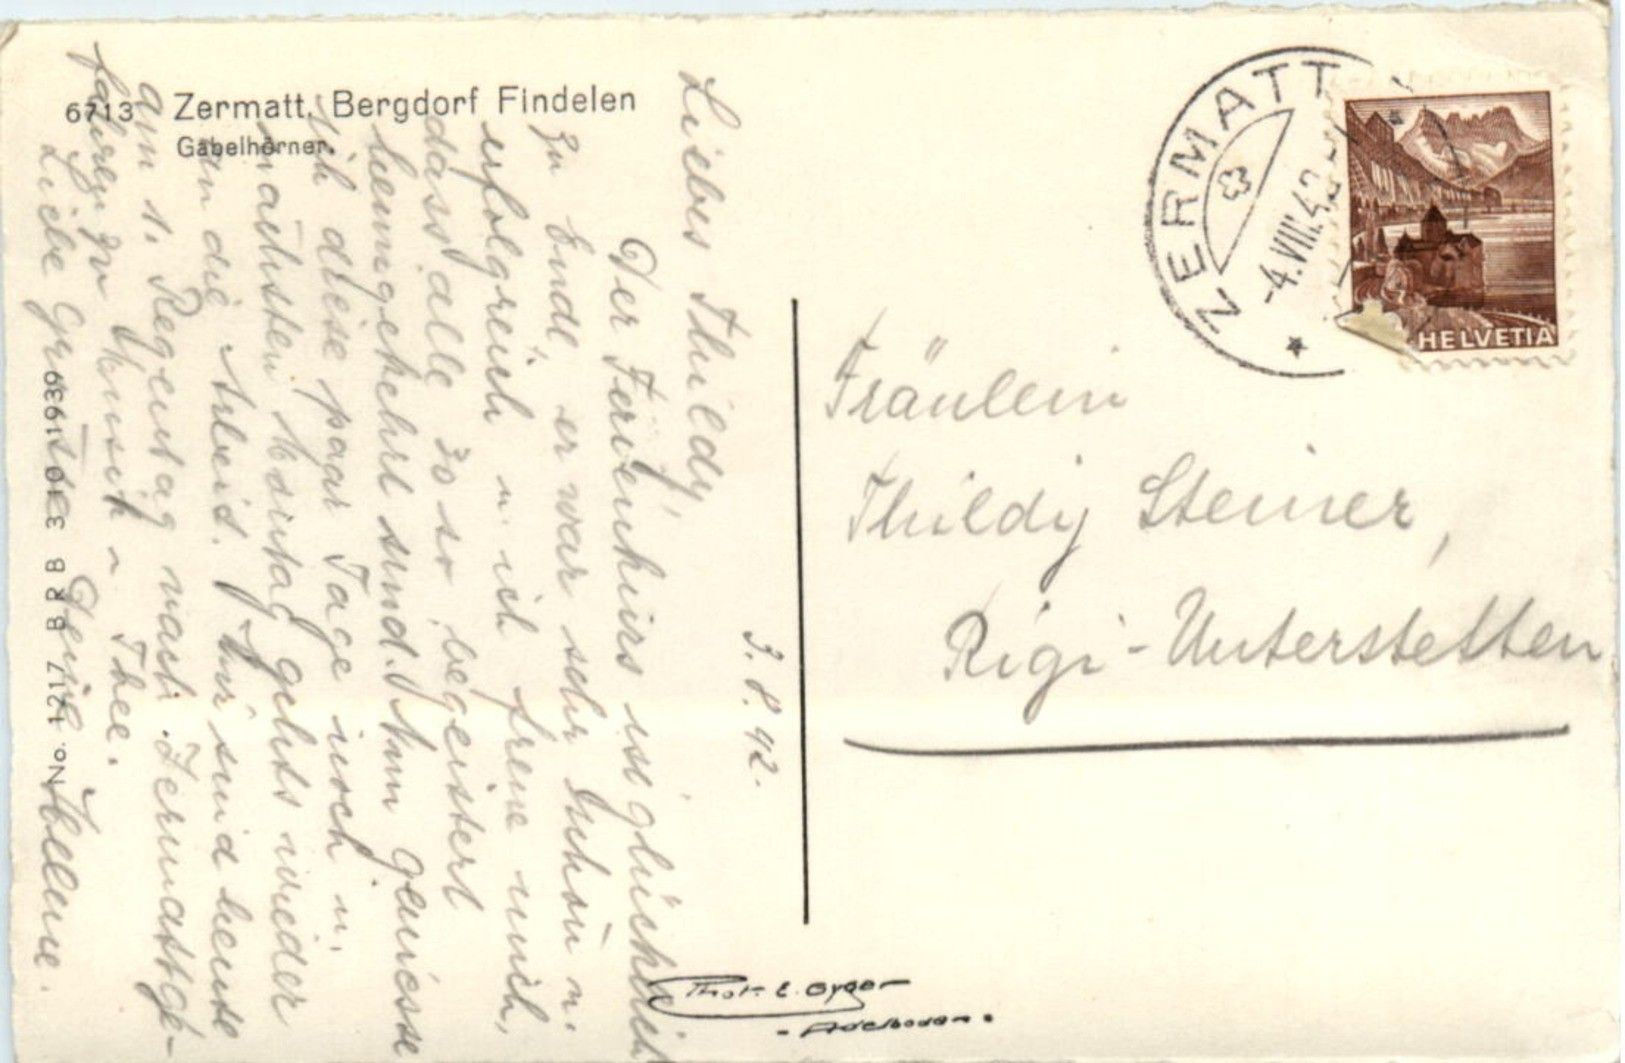 6713 Zermatt, Bergdorf Findelen
Gabelhörner.
Liebes Thildy,
Der Ferienkurs ist glücklich
zu Ende, er war sehr schön u.
erfolgreich u. ich freue mich,
dass alle 30 so begeistert
heimgekehrt sind. Nun geniesse
ich diese paar Tage noch u.
nächsten Montag gehts wieder
an die Arbeit. Wir sind heute
am 1. Regentag nach Zermatt ge-
fahren zu Musik u. Thee.
Liebe Grüsse Deine Hellene.
3. 8. 42.
No. 1217 B R B 3. 10. 1939
ZERMATT
-4.VIII.42
HELVETIA
Fräulein
Thildy Steiner,
Rigi-Unterstetten
Phot. E. Gyger
- Adelboden -